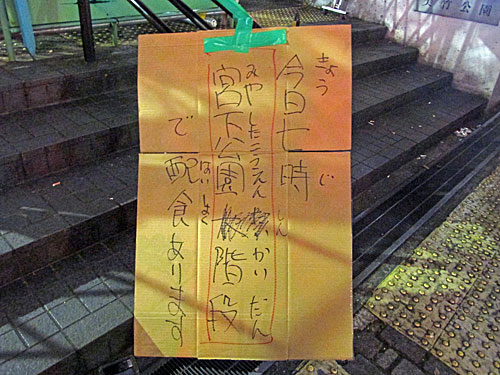 竹公園
きょう
今日七時
じ
みやしたこうえん かいだん
宮下公園 階段
で配食あります
はいしょく